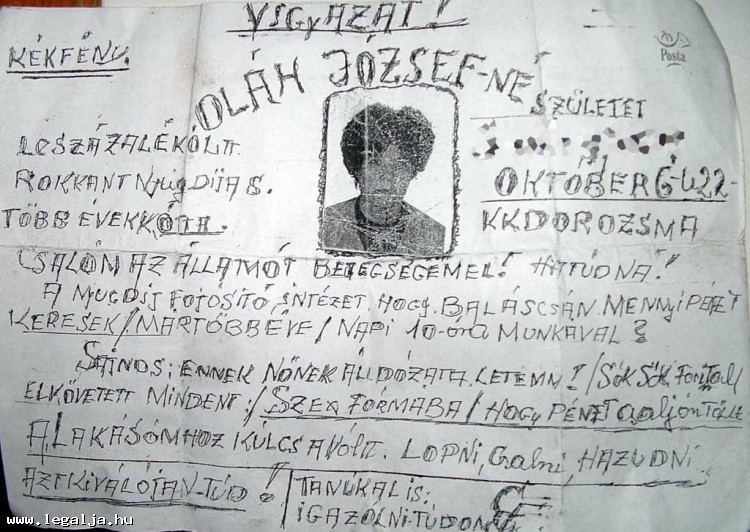 VIGYÁZAT!
KÉKFÉNY.
Posta
OLÁH JÓZSEF-NÉ
SZÜLETET
LESZÁZALÉKÓLT.
ROKKANT NYÚGDIJAS.
OKTÓBER 6-U.22-
TÖBB ÉVEKKÓTA.
KKDOROZSMA
CSALÓM AZ ÁLLAMÓT BETEGSÉGEMEL! HA TÚDNÁ!
A NYUGDIJ FOJOSÍTÓ, INTÉZET, HOGY. BALÁSCSÁN. MENNYI PÉNZT
KERESEK / MÁRTÖBBÉVE / NAPI 10-óra MUNKÁVAL?
SAJNOS; ENNEK NŐNEK ÁLDÓZATA. LETEMN! / SÓK SÓK
ELKÖVETETT MINDENT; / SZEX FÓRMÁBA / HOGY PÉNZT
A LAKÁSÓMHOZ KÚLCSA VÓLTT. LOPNI, Csalni, HAZUDNI
AZT KIVÁLÓJAN TUD!
TANÚKAL IS;
IGAZOLNI TÚDOM
www.legalja.hu